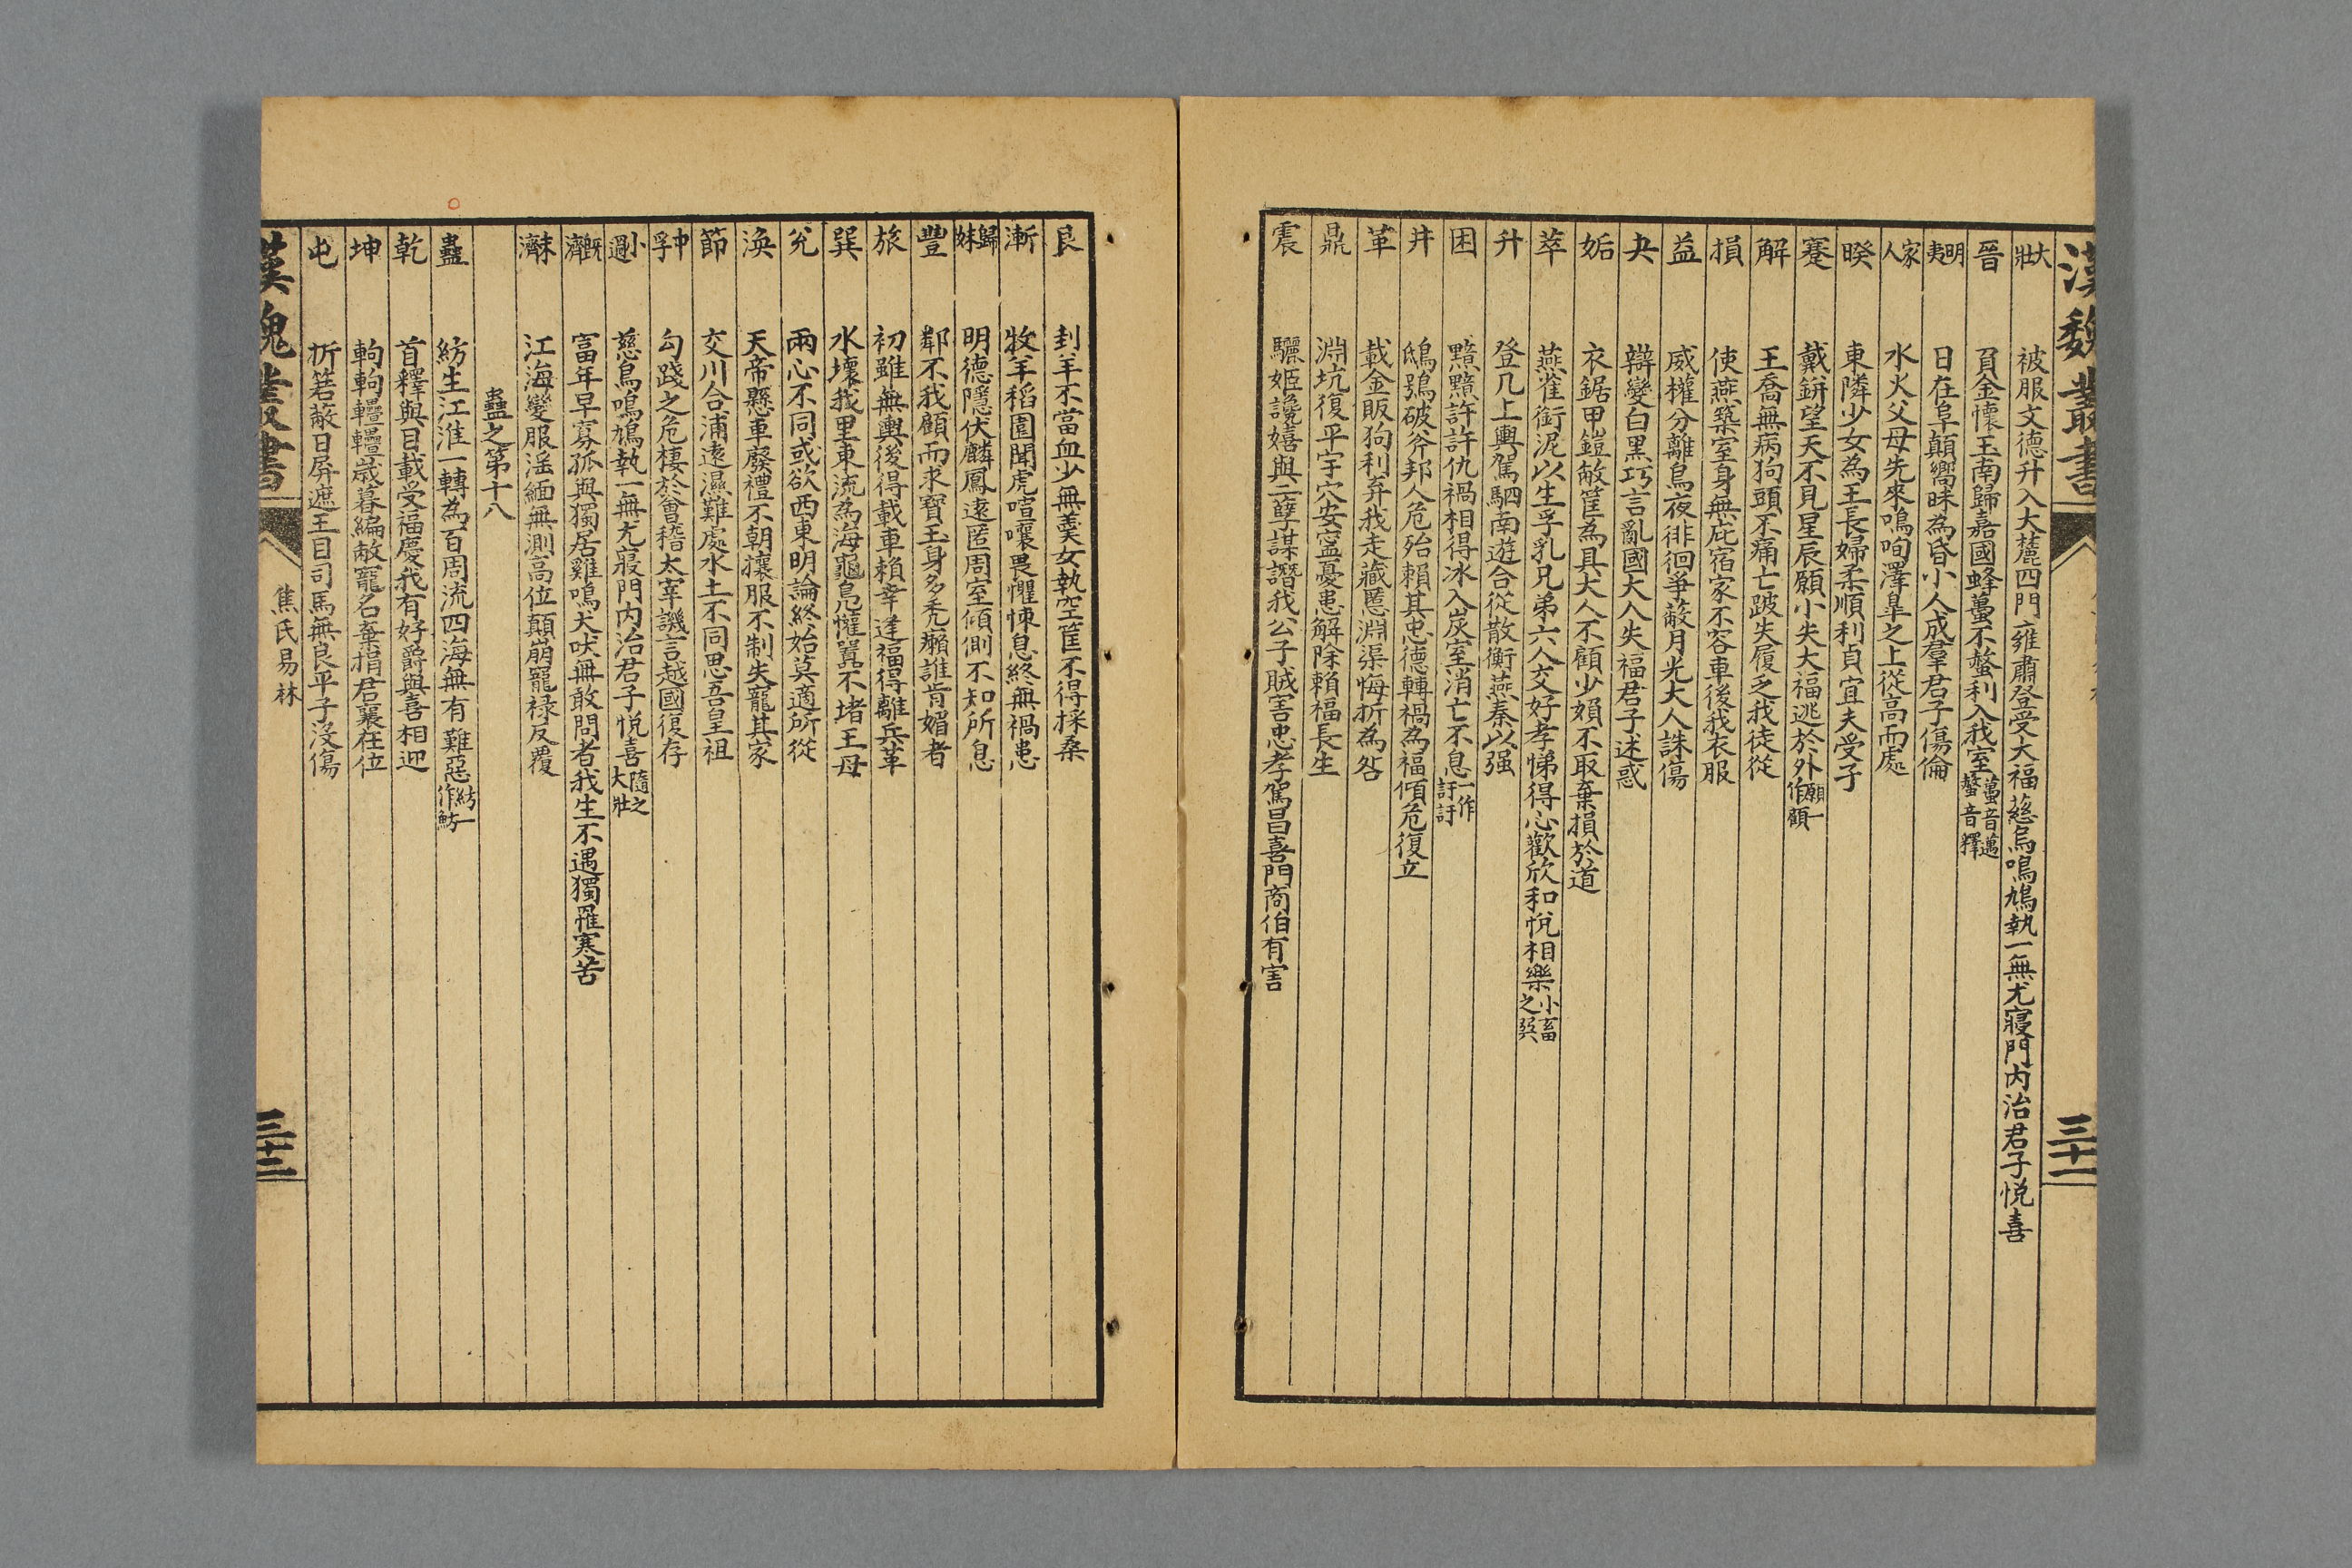 漢魏叢書
三十一
大壯 被服文德升入大麓四門雍肅登受大福慈烏鳴鳩執一無尤寢門內治君子悅喜
晉 負金懷玉南歸嘉國蜂蠆不螫利入我室蠆音邁螫音釋
明夷 日在阜顛嚮昧為昏小人成羣君子傷倫
家人 水火父母先來鳴呴澤皐之上從高而處
睽 東隣少女為王長婦柔順利貞宜夫受子
蹇 戴缾望天不見星辰願小失大福逃於外願一作顧
解 王喬無病狗頭不痛亡跛失履乏我徒從
損 使燕築室身無庇宿家不容車後我衣服
益 威權分離烏夜徘徊爭蔽月光大人誅傷
夬 辯變白黑巧言亂國大人失福君子迷惑
姤 衣鋸甲鎧敝筐為具大人不顧少婦不取棄損於道
萃 燕雀銜泥以生孚乳兄弟六人交好孝悌得心歡欣和悅相樂小畜之巽
升 登几上輿駕駟南遊合從散衡燕秦以强
困 黯黯許許仇禍相得冰入炭室消亡不息一作訏訏
井 鴟鴞破斧邦人危殆賴其忠德轉禍為福傾危復立
革 載金販狗利弃我走藏匿淵渠悔折為咎
鼎 淵坑復平宇穴安寍憂患解除賴福長生
震 驪姬讒嬉與二孽謀譖我公子賊害忠孝駕昌喜門商伯有害
艮 刲羊不當血少無羹女執空筐不得採桑
漸 牧羊稻園聞虎喧嚷畏懼悚息終無禍患
歸妹 明德隱伏麟鳳遠匿周室傾側不知所息
豐 鄰不我顧而求寶玉身多禿癩誰肯媚者
旅 初雖無輿後得載車賴幸逢福得離兵革
巽 水壞我里東流為海龜鳧懽囂不堵王母
兌 兩心不同或欲西東明論終始莫適所從
渙 天帝懸車廢禮不朝攘服不制失寵其家
節 交川合浦遠濕難處水土不同思吾皇祖
中孚 勾踐之危棲於會稽太宰譏言越國復存
小過 慈烏鳴鳩執一無尤寢門內治君子悅喜隨之大壯
既濟 富年早寡孤與獨居雞鳴犬吠無敢問者我生不遇獨罹寒苦
未濟 江海變服淫緬無測高位顛崩寵禄反覆
蠱之第十八
蠱 紡生江淮一轉為百周流四海無有難惡紡一作魴
乾 首釋與目載受福慶我有好爵與喜相迎
坤 輷輷轠轠歲暮編敝寵名棄捐君襄在位
屯 折箬蔽日屏遮王目司馬無良平子沒傷
漢魏叢書
焦氏易林
三十二